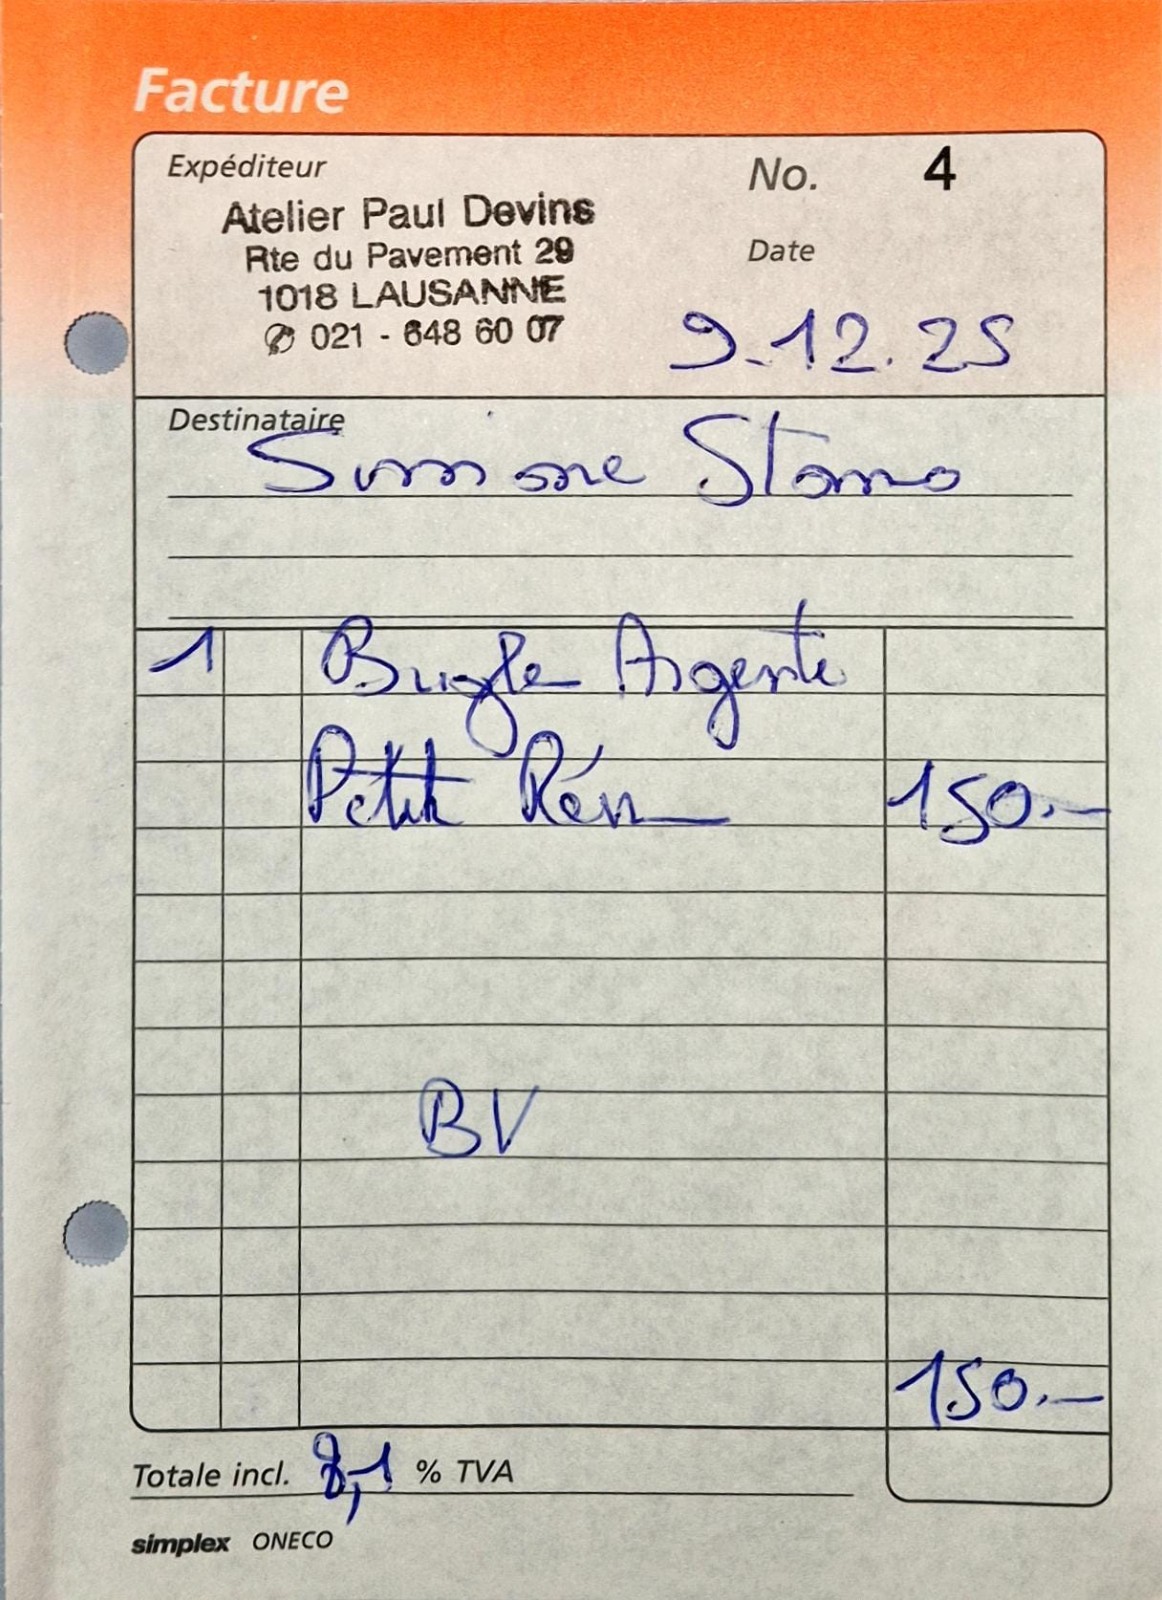 Facture
Expéditeur
No. 4
Atelier Paul Devins
Rte du Pavement 29
1018 LAUSANNE
✆ 021 - 648 60 07
Date
9.12.25
Destinataire
Simone Stamo
1 Bugle Argenté
Petit Rén 150.—
BV
150.—
Totale incl. 8,1 % TVA
simplex ONECO